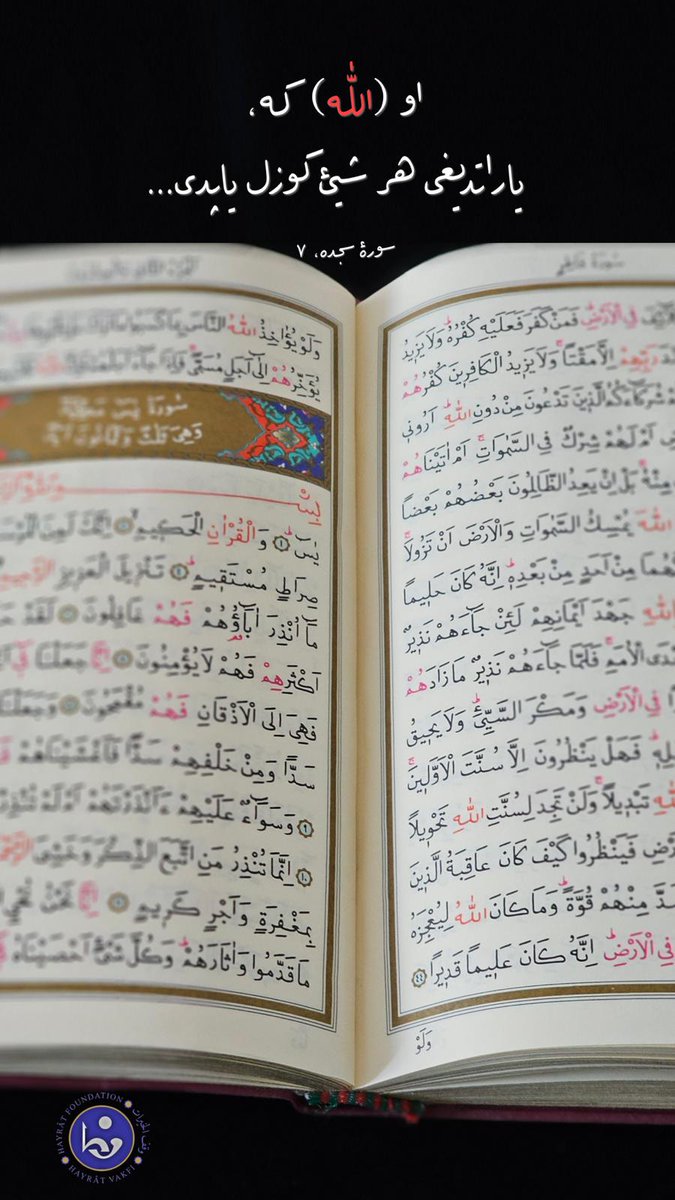 او (اللّٰه) كه،
ياراتديغى هر شيئ كوزل ياپدى...
سورۀ سجده، ٧
فِي الْاَرْضِ فَمَنْ كَفَرَ فَعَلَيْهِ كُفْرُهُ وَلَا يَزٖيدُ
رَبِّهِمْ اِلَّا مَقْتاً وَلَا يَزٖيدُ الْكَافِرٖينَ كُفْرُهُمْ
شُرَكَٓاءَكُمُ الَّذٖينَ تَدْعُونَ مِنْ دُونِ اللّٰهِ اَرُونٖي
اَمْ لَهُمْ شِرْكٌ فِي السَّمٰوَاتِ اَمْ اٰتَيْنَاهُمْ
مِنْهُ بَلْ اِنْ يَعِدُ الظَّالِمُونَ بَعْضُهُمْ بَعْضاً
اللّٰهَ يُمْسِكُ السَّمٰوَاتِ وَالْاَرْضَ اَنْ تَزُولَا
مِنْ اَحَدٍ مِنْ بَعْدِهٖ اِنَّهُ كَانَ حَلٖيماً
جَهْدَ اَيْمَانِهِمْ لَئِنْ جَٓاءَهُمْ نَذٖيرٌ
الْاُمَمِ فَلَمَّا جَٓاءَهُمْ نَذٖيرٌ مَا زَادَهُمْ
فِي الْاَرْضِ وَمَكْرَ السَّيِّئِ وَلَا يَحٖيقُ
فَهَلْ يَنْظُرُونَ اِلَّا سُنَّتَ الْاَوَّلٖينَ
تَبْدٖيلاً وَلَنْ تَجِدَ لِسُنَّتِ اللّٰهِ تَحْوٖيلاً
فَيَنْظُرُوا كَيْفَ كَانَ عَاقِبَةُ الَّذٖينَ
مِنْهُمْ قُوَّةً وَمَا كَانَ اللّٰهُ لِيُعْجِزَهُ
فِي الْاَرْضِ اِنَّهُ كَانَ عَلٖيماً قَدٖيراً ٤٤
وَلَوْ
وَلَوْ يُؤٰاخِذُ اللّٰهُ النَّاسَ بِمَا كَسَبُوا
يُؤَخِّرُهُمْ اِلٰٓى اَجَلٍ مُسَمًّى فَاِذَا جَٓاءَ
سُورَةُ يٰسٓ
يٰسٓ ١ وَالْقُرْاٰنِ الْحَكٖيمِ ٢ اِنَّكَ لَمِنَ
صِرَاطٍ مُسْتَقٖيمٍ ٤ تَنْزٖيلَ الْعَزٖيزِ الرَّحٖيمِ
مَٓا اُنْذِرَ اٰبَٓاؤُهُمْ فَهُمْ غَافِلُونَ ٦ لَقَدْ
اَكْثَرِهِمْ فَهُمْ لَا يُؤْمِنُونَ ٧ اِنَّا جَعَلْنَا فٖٓي
فَهِيَ اِلَى الْاَذْقَانِ فَهُمْ مُقْمَحُونَ ٨ وَجَعَلْنَا
سَداًّ وَمِنْ خَلْفِهِمْ سَداًّ فَاَغْشَيْنَاهُمْ
٩ وَسَوَٓاءٌ عَلَيْهِمْ ءَاَنْذَرْتَهُمْ اَمْ لَمْ
١٠ اِنَّمَا تُنْذِرُ مَنِ اتَّبَعَ الذِّكْرَ وَخَشِيَ
بِمَغْفِرَةٍ وَاَجْرٍ كَرٖيمٍ ١١ اِنَّا نَحْنُ نُحْيِ
مَا قَدَّمُوا وَاٰثَارَهُمْ وَكُلَّ شَيْءٍ اَحْصَيْنَاهُ
HAYRÂT FOUNDATION
HAYRÂT VAKFI